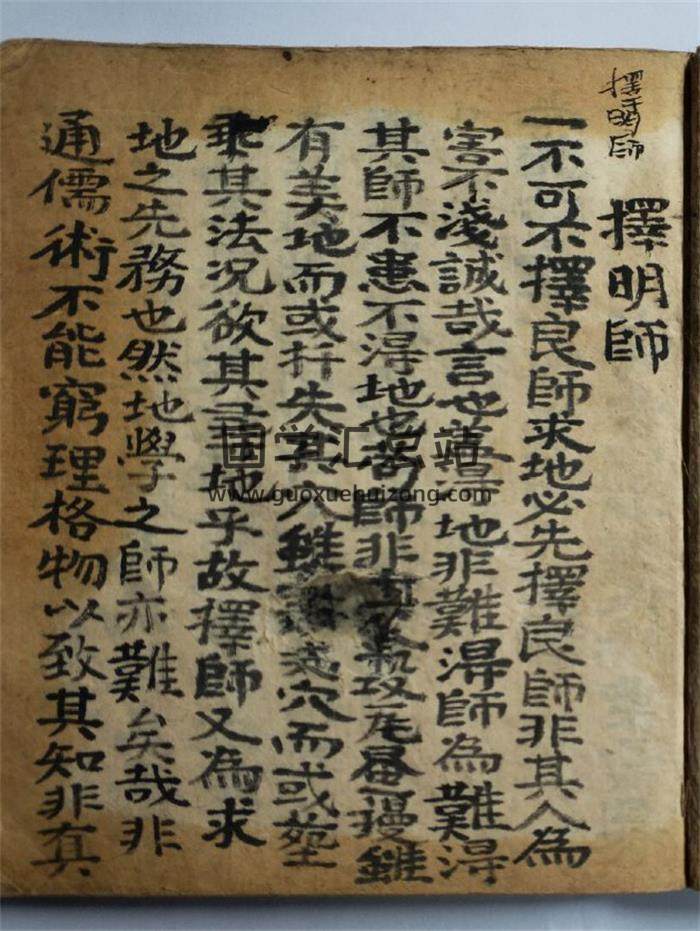 擇明師
擇明師
一不可不擇良師求地必先擇良師非其人為
害不淺誠哉言也蓋得地非難得師為難得
其師不患不得地也苟師非真
有美地而或扦失其穴雖 穴而或塟
乘其法況欲其尋地乎故擇師又為求
地之先務也然地學之師亦難矣哉非
通儒術不能窮理格物以致其知非有真
国学汇总站
www.guoxuehuizong.com